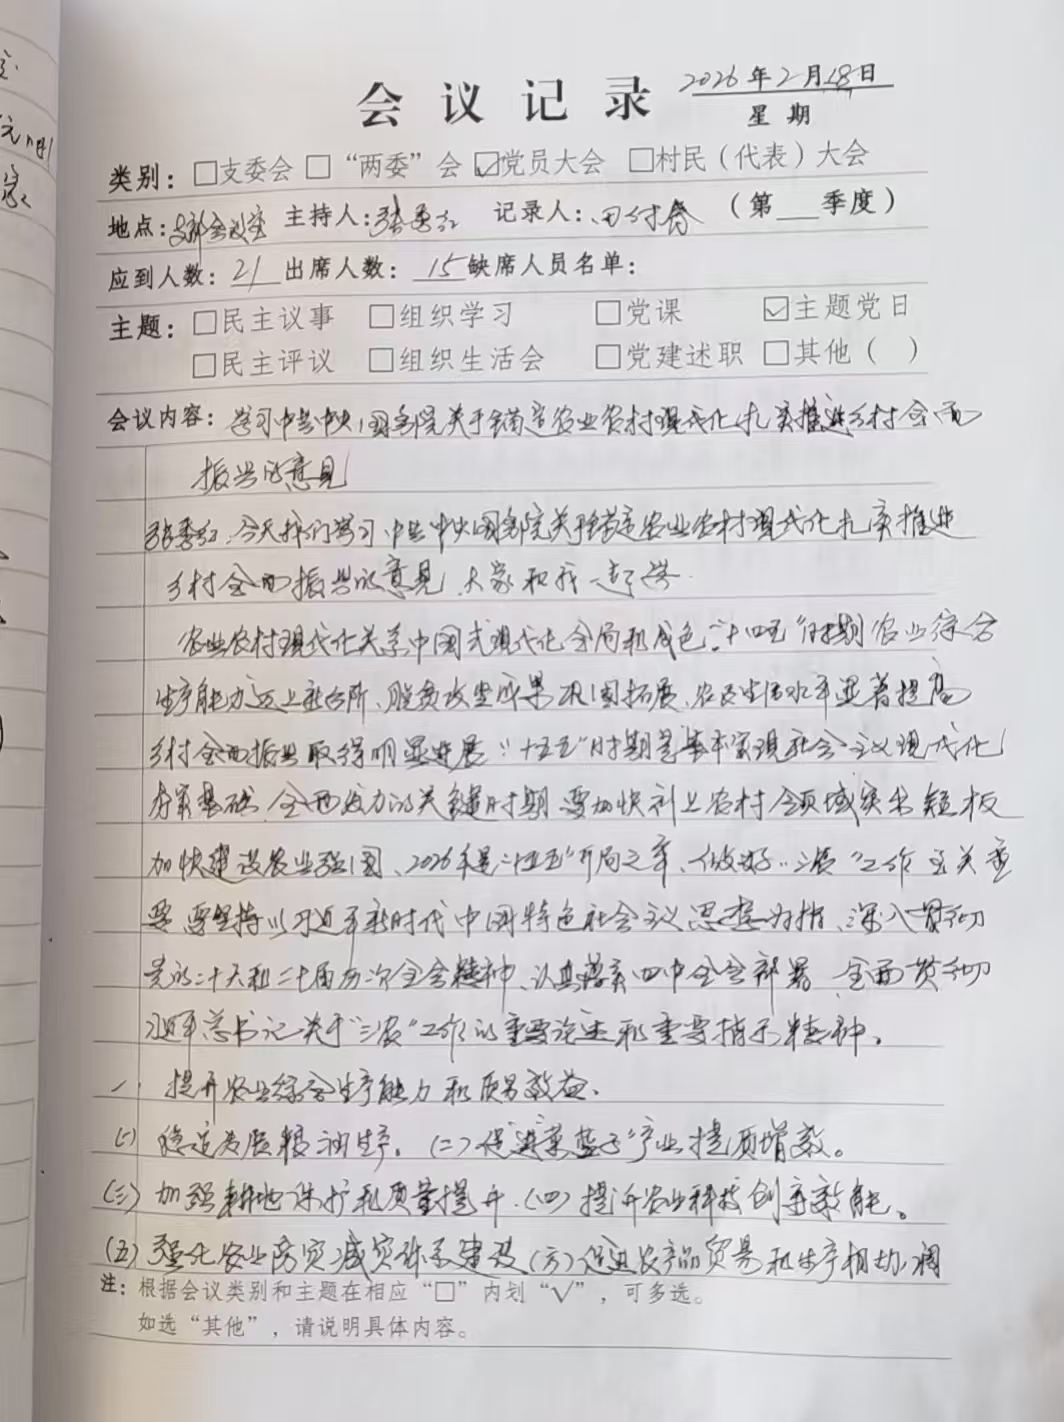 会议记录
2026年2月18日
星期
类别：□支委会 □“两委”会 ☑党员大会 □村民（代表）大会
地点：支部会议室 主持人：张秀红 记录人：田付春 （第___季度）
应到人数：21 出席人数：15 缺席人员名单：
主题：□民主议事 □组织学习 □党课 ☑主题党日
□民主评议 □组织生活会 □党建述职 □其他（ ）
会议内容：学习中共中央国务院关于锚定农业农村现代化扎实推进乡村全面
振兴的意见
张秀红：今天我们学习中共中央国务院关于锚定农业农村现代化扎实推进
乡村全面振兴的意见，大家和我一起学.
农业农村现代化关系中国式现代化全局和成色，“十四五”时期农业综合
生产能力迈上新台阶、脱贫攻坚成果巩固拓展、农民生活水平显著提高
乡村全面振兴取得明显进展.“十五五”时期是基本实现社会主义现代化
夯实基础、全面发力的关键时期 要加快补上农村领域突出短板
加快建设农业强国、2026年是“十五五”开局之年、做好“三农”工作至关重
要 要坚持以习近平新时代中国特色社会主义思想为指、深入贯彻
党的二十大和二十届历次全会精神、认真落实四中全会部署 全面贯彻
习近平总书记关于“三农”工作的重要论述和重要指示精神。
一、提升农业综合生产能力和质量效益、
(一) 稳定发展粮油生产。(二) 促进菜篮子产业提质增效。
(三) 加强耕地保护和质量提升.(四) 提升农业科技创新效能。
(五) 强化农业防灾减灾体系建设 (六) 促进农产品贸易和生产相协调
注：根据会议类别和主题在相应“□”内划“√”，可多选。
如选“其他”，请说明具体内容。